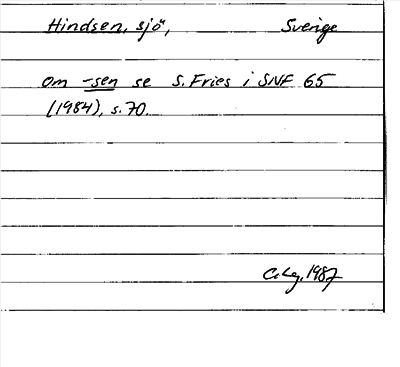 Hindsen, sjö, Sverige
om -sen se S. Fries i SNF 65
(1984), s. 70.
1987